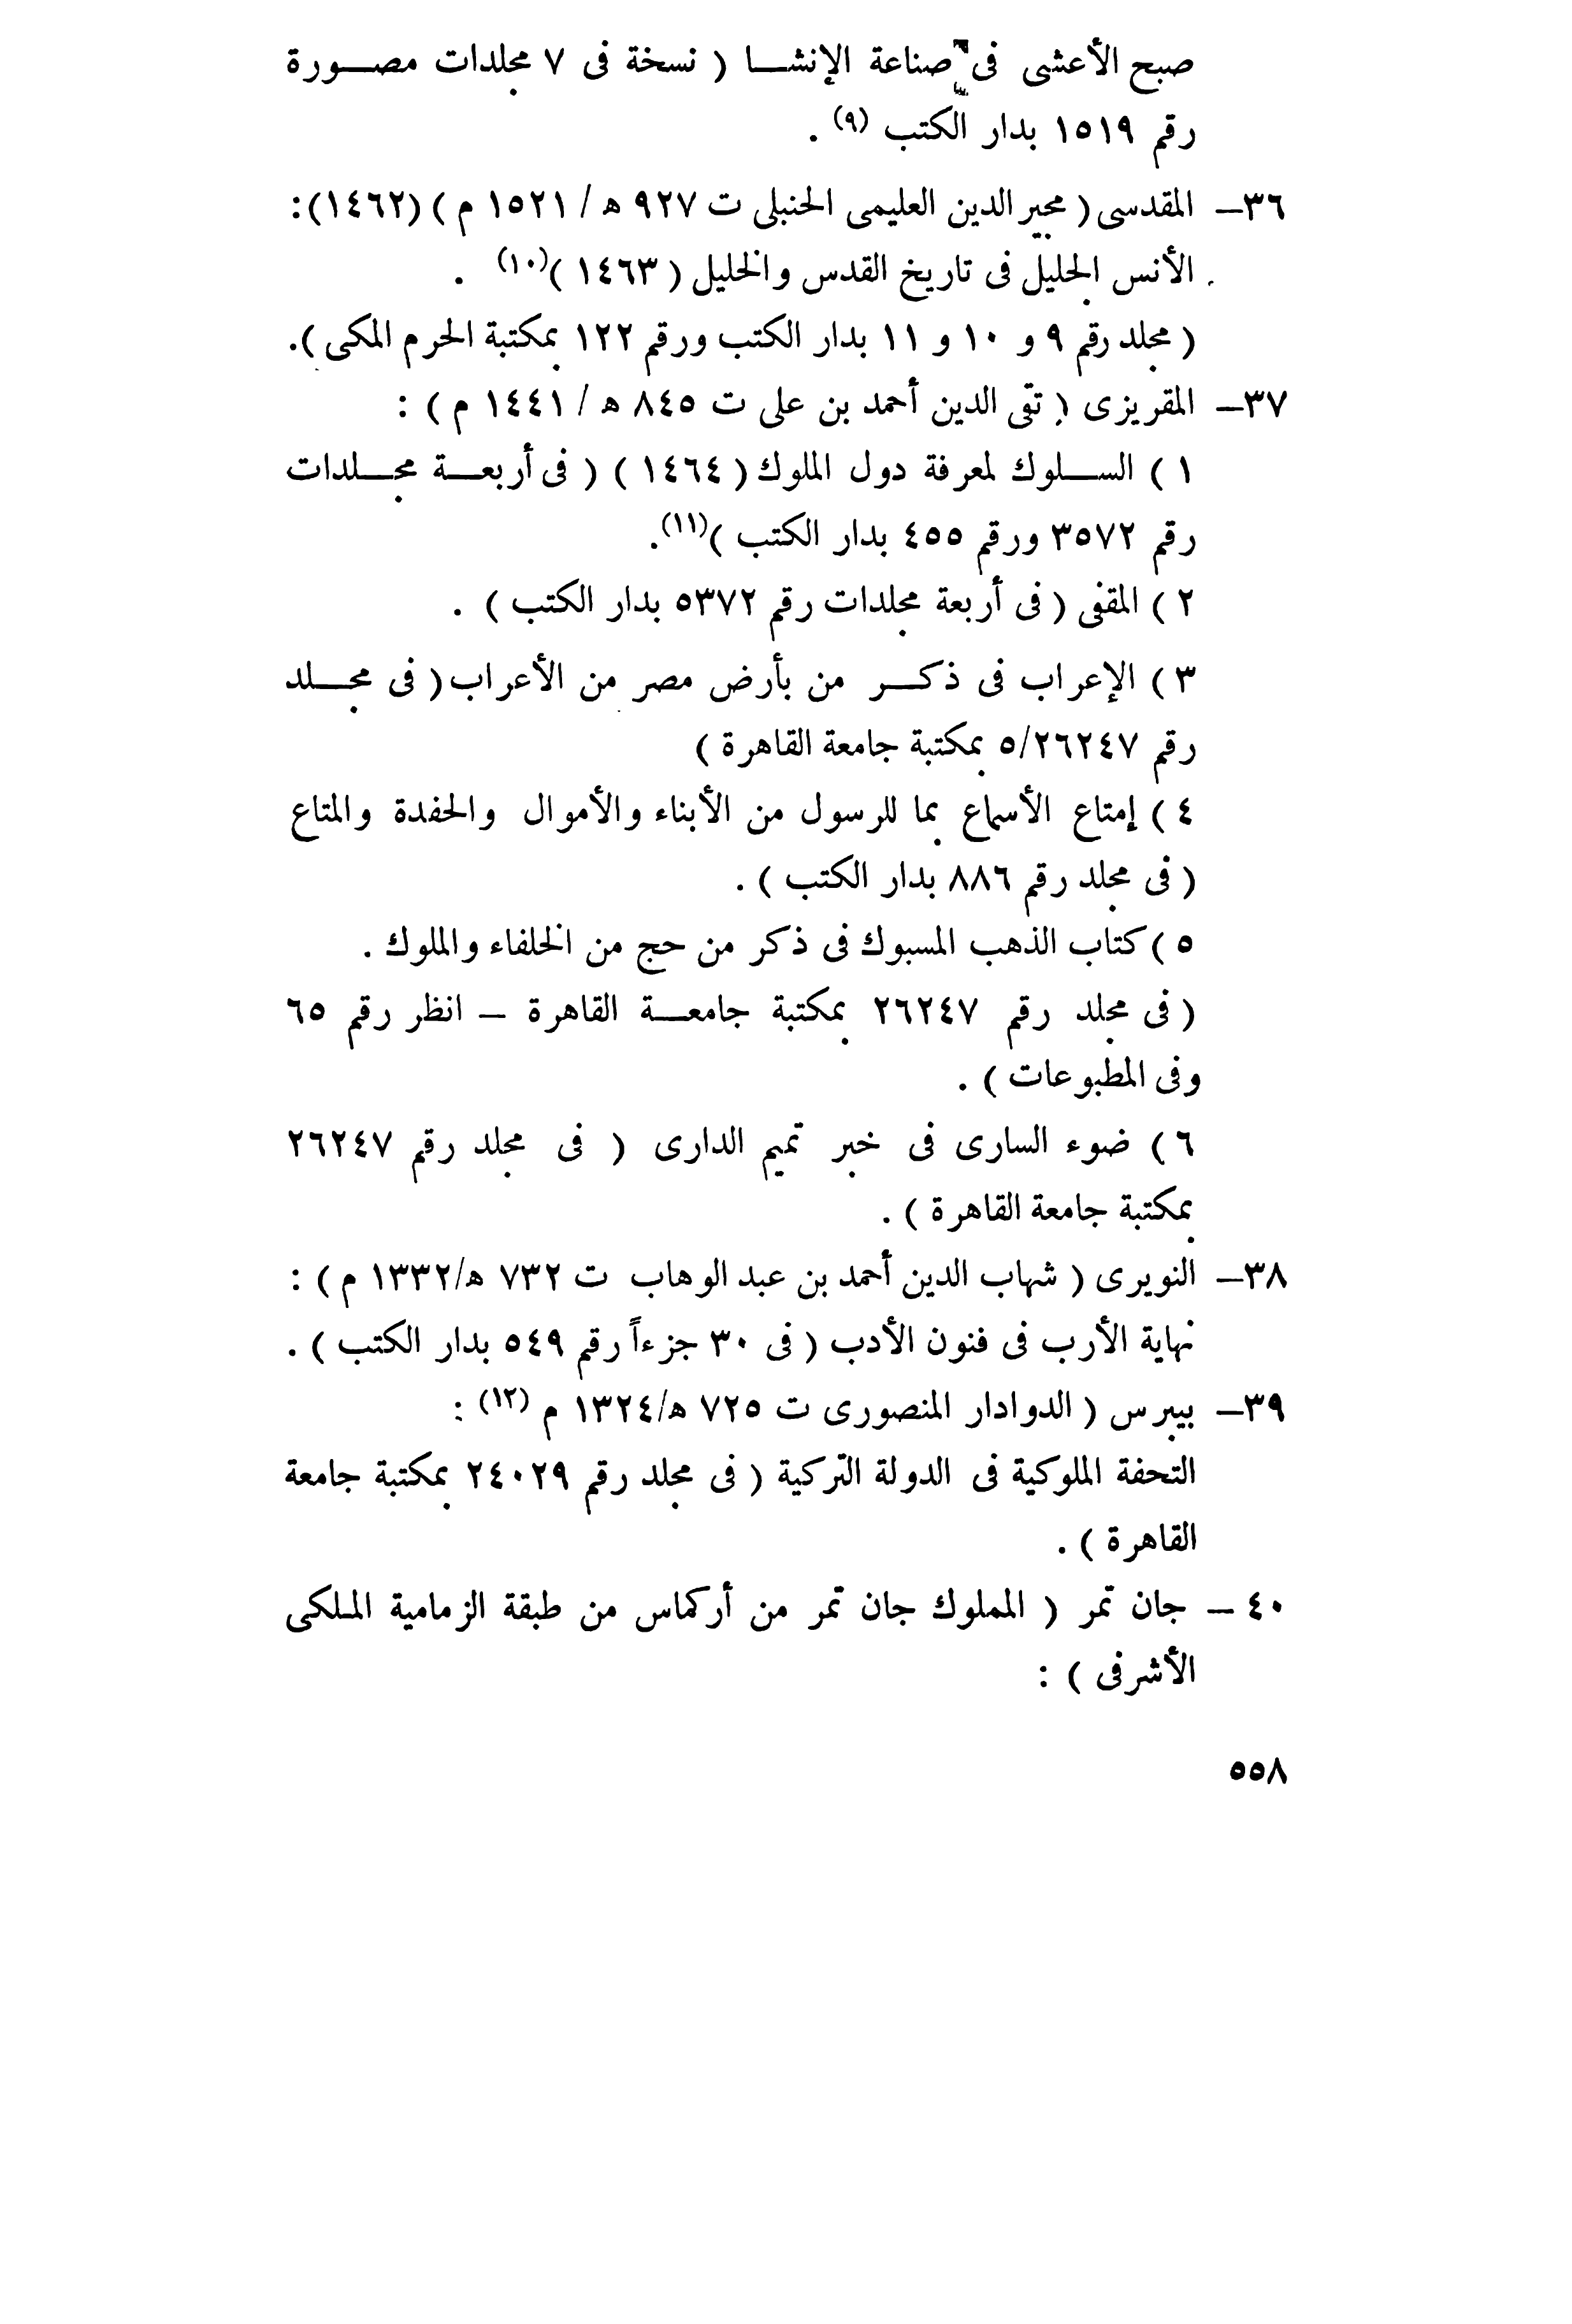 صبح الأعشى فى صناعة الإنشا ( نسخة فى ٧ مجلدات مصورة
رقم ١٥١٩ بدار الكتب (٩) .
٣٦— المقدسى ( مجير الدين العليمى الحنبلى ت ٩٢٧ ه / ١٥٢١ م ) (١٤٦٢):
الأنس الجليل فى تاريخ القدس والخليل ( ١٤٦٣ )(١٠) .
( مجلد رقم ٩ و ١٠ و ١١ بدار الكتب ورقم ١٢٢ بمكتبة الحرم المكى ).
٣٧— المقريزى ( تقى الدين أحمد بن على ت ٨٤٥ ه / ١٤٤١ م ) :
١ ) السلوك لمعرفة دول الملوك ( ١٤٦٤ ) ( فى أربعة مجلدات
رقم ٣٥٧٢ ورقم ٤٥٥ بدار الكتب )(١١).
٢ ) المقفى ( فى أربعة مجلدات رقم ٥٣٧٢ بدار الكتب ) .
٣ ) الإعراب فى ذكر من بأرض مصر من الأعراب ( فى مجلد
رقم ٥/٢٦٢٤٧ بمكتبة جامعة القاهرة )
٤ ) إمتاع الأسماع بما للرسول من الأبناء والأموال والحفدة والمتاع
( فى مجلد رقم ٨٨٦ بدار الكتب ) .
٥ ) كتاب الذهب المسبوك فى ذكر من حج من الخلفاء والملوك .
( فى مجلد رقم ٢٦٢٤٧ بمكتبة جامعة القاهرة — انظر رقم ٦٥
وفى المطبوعات ) .
٦ ) ضوء السارى فى خبر تميم الدارى ( فى مجلد رقم ٢٦٢٤٧
بمكتبة جامعة القاهرة ) .
٣٨— النويرى ( شهاب الدين أحمد بن عبد الوهاب ت ٧٣٢ ه/١٣٣٢ م ) :
نهاية الأرب فى فنون الأدب ( فى ٣٠ جزءاً رقم ٥٤٩ بدار الكتب ) .
٣٩— بيبرس ( الدوادار المنصورى ت ٧٢٥ ه/١٣٢٤ م (١٢) :
التحفة الملوكية فى الدولة التركية ( فى مجلد رقم ٢٤٠٢٩ بمكتبة جامعة
القاهرة ) .
٤٠ — جان تمر ( المملوك جان تمر من أركماس من طبقة الزمامية الملكى
الأشرفى ) :
٥٥٨